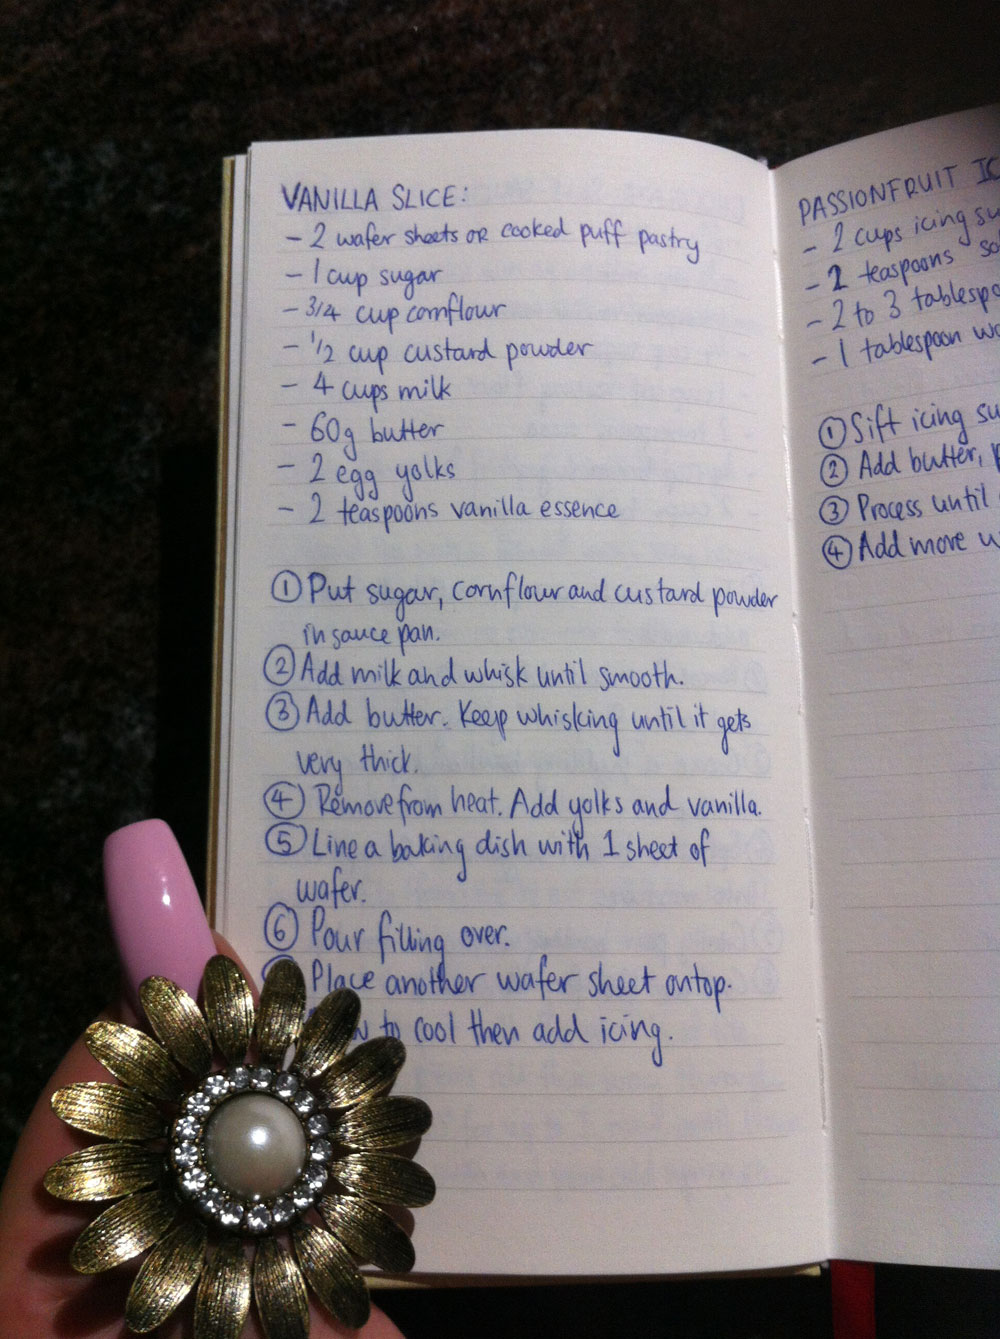 VANILLA SLICE:
- 2 wafer sheets OR cooked puff pastry
- 1 cup sugar
- 3/4 cup cornflour
- 1/2 cup custard powder
- 4 cups milk
- 60g butter
- 2 egg yolks
- 2 teaspoons vanilla essence
① Put sugar, cornflour and custard powder
in sauce pan.
② Add milk and whisk until smooth.
③ Add butter. Keep whisking until it gets
very thick.
④ Remove from heat. Add yolks and vanilla.
⑤ Line a baking dish with 1 sheet of
wafer.
⑥ Pour filling over.
Place another wafer sheet ontop.
to cool then add icing.
PASSIONFRUIT
- 2 cups icing
- 2 teaspoons
- 2 to 3
- 1 tablespoon
① Sift icing
② Add butter,
③ Process until
④ Add more